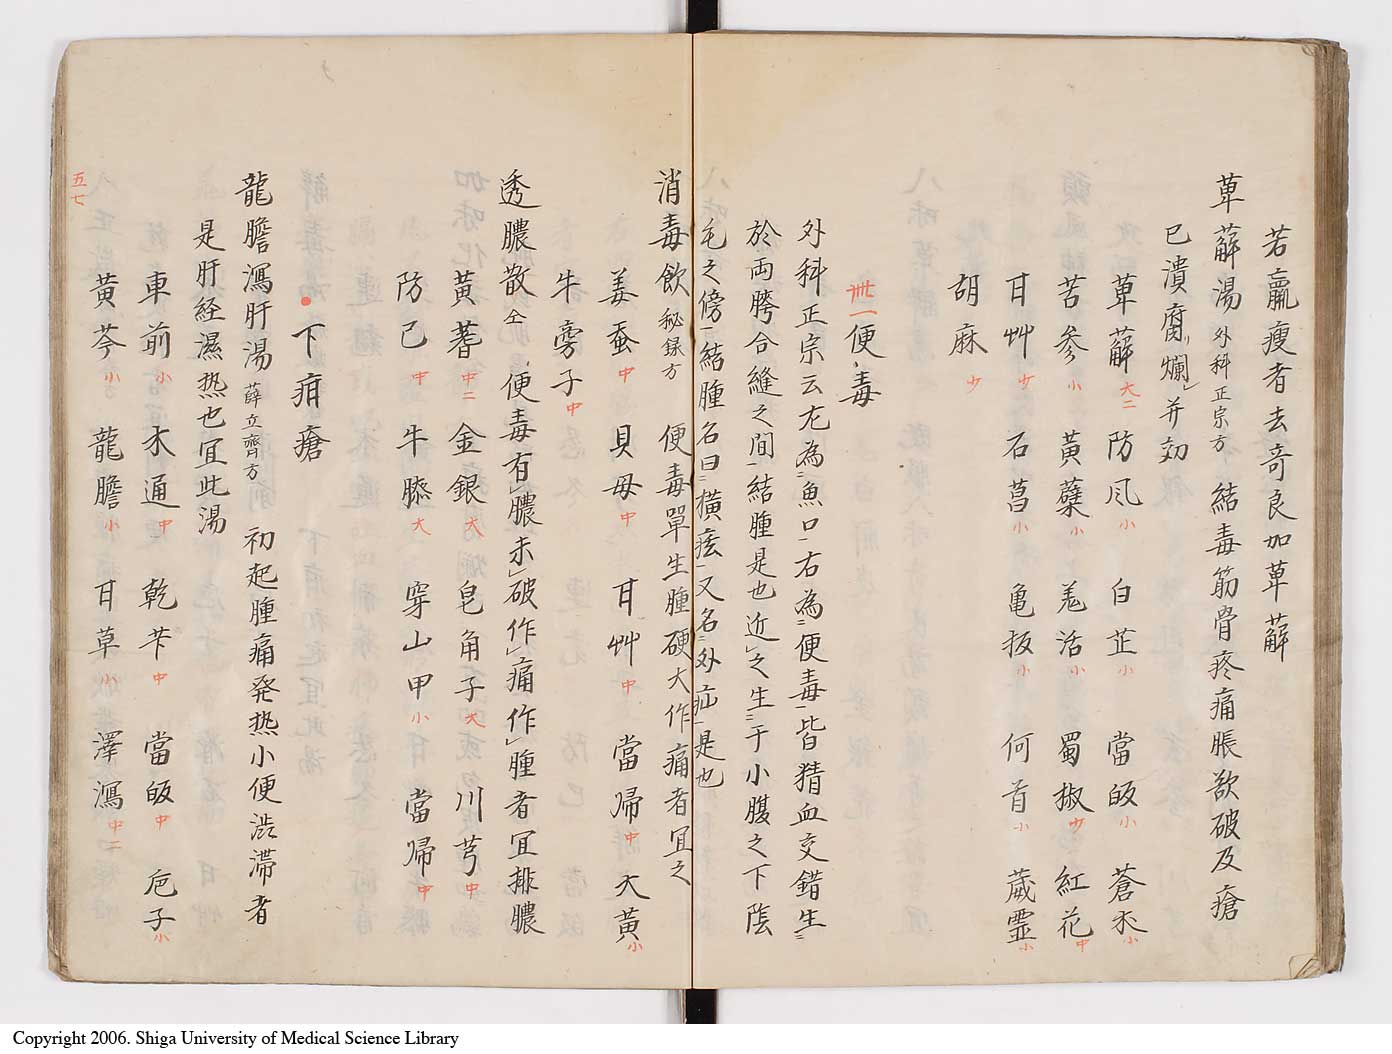 若羸瘦者去奇良加萆薢
萆薢湯 外科正宗方 結毒筋骨疼痛脹欲破及瘡
已潰腐爛并効
萆薢大二 防风小 白芷小 當皈小 蒼朮小
苦参小 黄蘖小 羗活小 蜀椒少 紅花中
甘艸少 石菖小 亀板小 何首小 葳霊小
胡麻少
卅一 便毒
外科正宗云左為魚口右為便毒皆猜血交錯生
於両胯合縫之間結腫是也近之生于小腹之下陰
毛之傍結腫名曰横痃又名外疝是也
消毒飲 秘録方 便毒單生腫硬大作痛者宜之
姜蚕中 貝母中 甘艸中 當帰中 大黄小
牛旁子中
透膿散 仝 便毒有膿未破作痛作腫者宜排膿
黄蓍中二 金銀大 皂角子大 川芎中
防已中 牛膝大 穿山甲小 當帰中
下疳瘡
龍膽瀉肝湯 薛立齊方 初起腫痛発热小便渋滞者
是肝経濕热也宜此湯
車前小 木通中 乾芐中 當皈中 梔子小
黄芩小 龍膽小 甘草小 澤瀉中二
五七
Copyright 2006. Shiga University of Medical Science Library